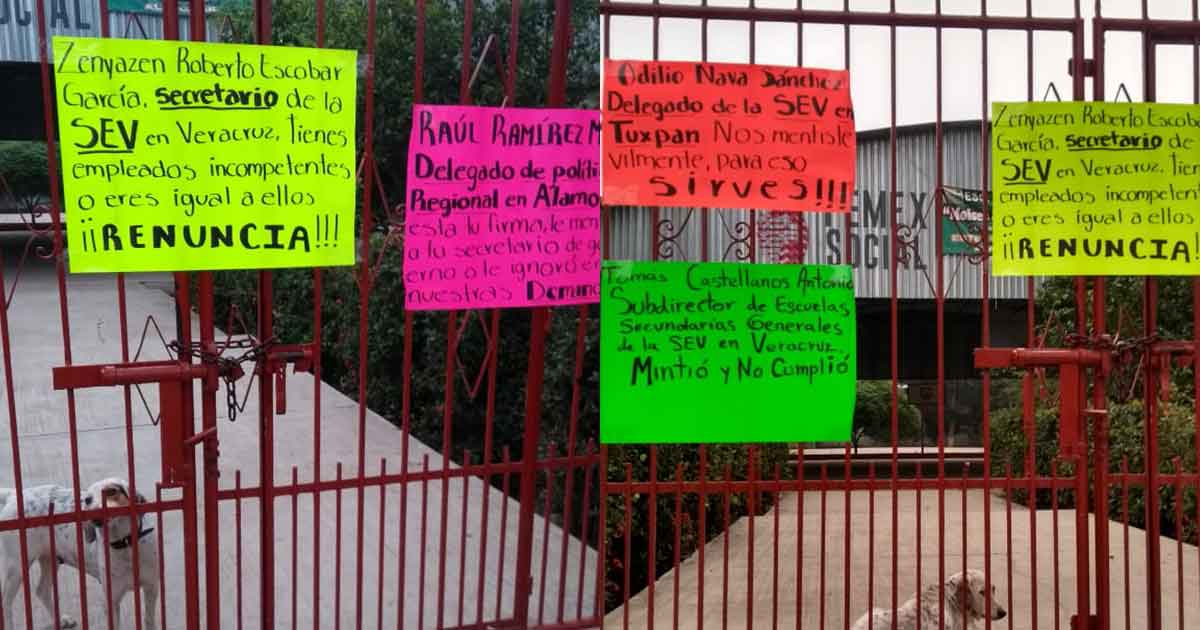 SOCIAL
Zenyazen Roberto Escobar
García, secretario de la
SEV en Veracruz, tienes
empleados incompetentes
o eres igual a ellos
¡¡RENUNCIA!!!
RAÚL RAMÍREZ M
Delegado de políti
Regional en Álamo
esta tu firma, le men
a tu secretario de go
erno o le ignoró en
nuestras Demand
Odilio Nava Sánchez
Delegado de la SEV en
Tuxpan Nos mentiste
vilmente, para eso
sirves!!!
Tomas Castellanos Antonio
Subdirector de Escuelas
Secundarias Generales
de la SEV en Veracruz
Mintió y No Cumplió
EMEX
SOCIAL
Zenyazen Roberto Escoba
García, secretario de
SEV en Veracruz, tien
empleados incompeten
o eres igual a ellos
¡¡RENUNCIA!